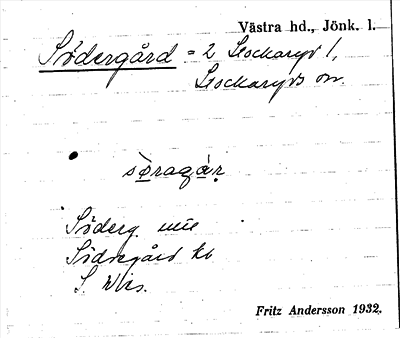 Västra hd., Jönk. l.
Södergård = 2 Stockaryd 1,
Stockaryds sn.
söragár
Söderg.
Södregård
S.
Fritz Andersson 1932.